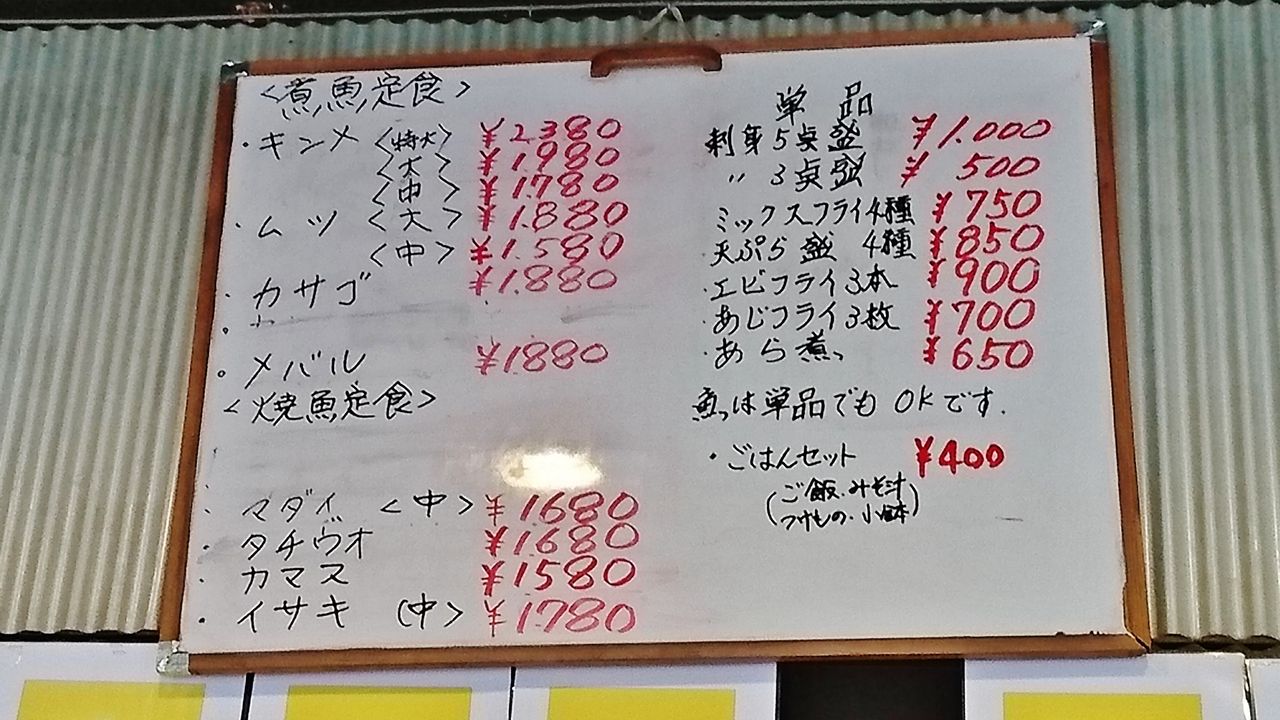 <煮魚定食>
・キンメ <特大> ¥2,380
<大> ¥1,980
<中> ¥1,780
・ムツ <大> ¥1,880
<中> ¥1,580
・カサゴ ¥1,880
・メバル ¥1880
<焼魚定食>
・マダイ <中> ¥1680
・タチウオ ¥1,680
・カマス ¥1580
・イサキ (中> ¥1,780
単品
刺身5点盛 ¥1,000
〃 3点盛 ¥500
ミックスフライ4種 ¥750
天ぷら盛 4種 ¥850
・エビフライ3本 ¥900
・あじフライ3枚 ¥700
・あら煮 ¥650
魚は単品でも OKです.
・ごはんセット ¥400
(ご飯・みそ汁
つけもの・小鉢)